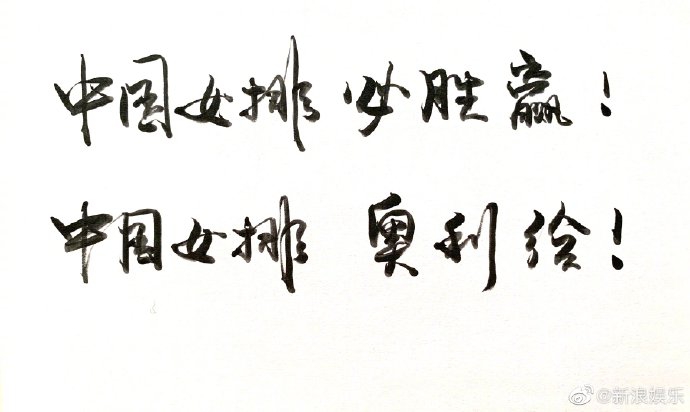 中国女排必胜赢！
中国女排 奥利给！
@新浪娱乐